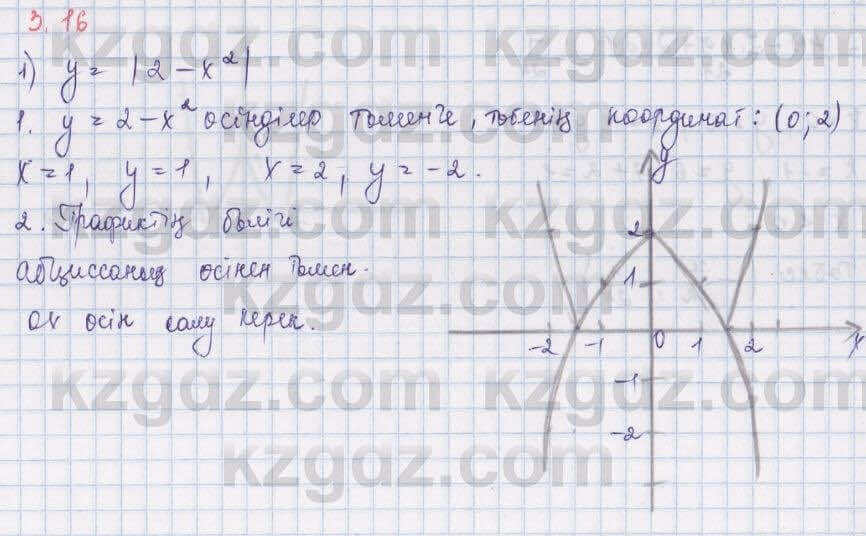 3.16
1) y = |2 - x²|
1. y = 2 - x² осінділер төменге, төбенің координат: (0; 2)
x = 1, y = 1, x = 2, y = -2.
2. Графиктің бөлігі
абциссаның осінен төмен.
ох осін салу керек.
y
2
1
-2 -1 0 1 2 x
-1
-2
kzgdz.com kzgdz.com
kzgdz.com
kzgdz.com kzgdz.com
kzgdz.com
kzgdz.com kzgdz.com
kzgdz.com